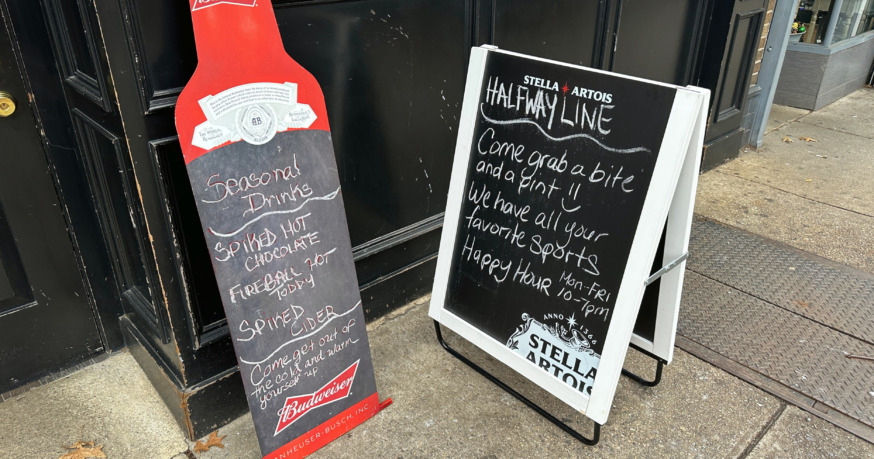 Seasonal
Drinks
SPIKED HOT
CHOCOLATE
FIREBALL HOT
TODDY
SPIKED CIDER
Come get out of
the cold and warm
yourself up
Budweiser
ANHEUSER-BUSCH, INC.
STELLA ARTOIS
HALFWAY LINE
Come grab a bite
and a pint !!
We have all your
favorite Sports
Happy Hour MON-FRI
10-7pm
ANNO 1366
STELLA
ARTOIS